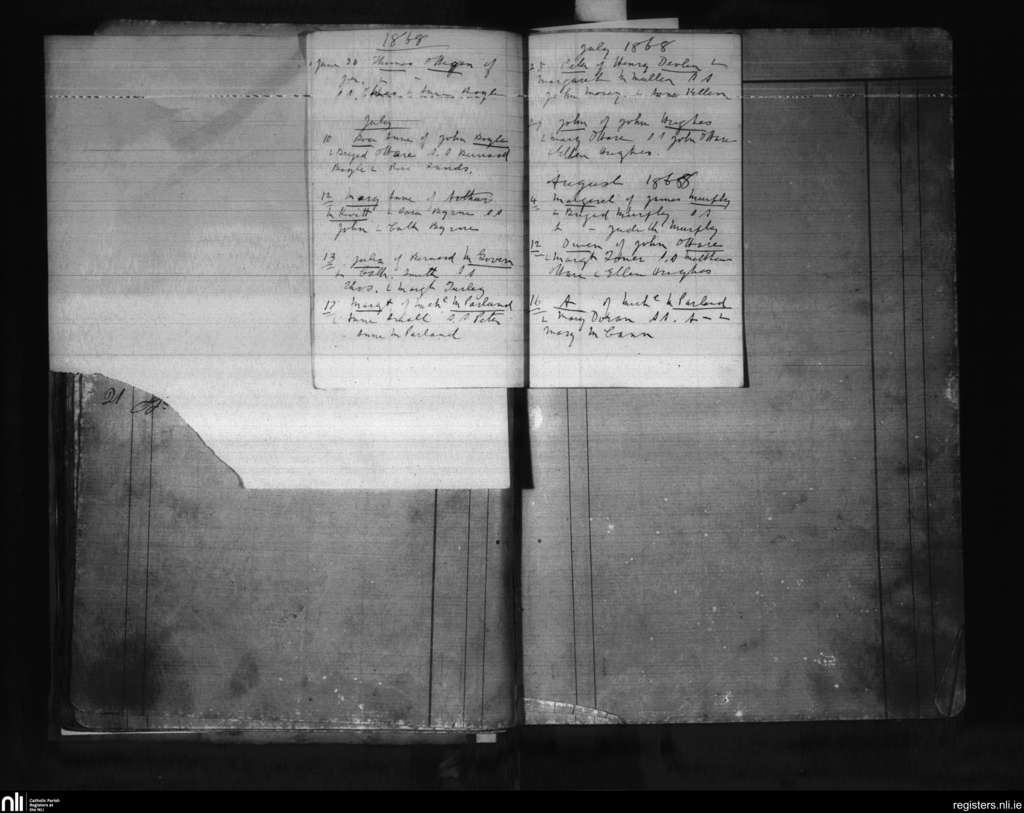 1868
June 30 Thomas of
Jas.
SS. Anne Boyle
July
10 Rose Anne of John Boyle
& Briged O'Hare S.S Bernard
Boyle & Rose
12 Mary Anne of Arthur
McKevitt & Byrne S.S
John & Cath Byrne
13 Julia of Bernard McGovern
& Cath. Smith S.S
Thos. & Margt Turley
17 Margt of Michl McParland
& Anne S.S Peter
Anne McParland
July 1868
25 of Henry Devlin &
Margaret McMullen S.S
John &
John of John Hughes
& Mary O'Hare S.S John O'Hare
& Ellen Hughes.
August 1868
4 Margaret of James Murphy
& Briged Murphy S.S
& - Judith Murphy
12 Owen of John O'Hare
& Margt S.S Matthew
O'Hare & Ellen Hughes
16 A of Michl McParland
& Mary Doran S.S. A - &
Mary McCann
21
nli
Catholic Parish
Registers at
the NLI
registers.nli.ie